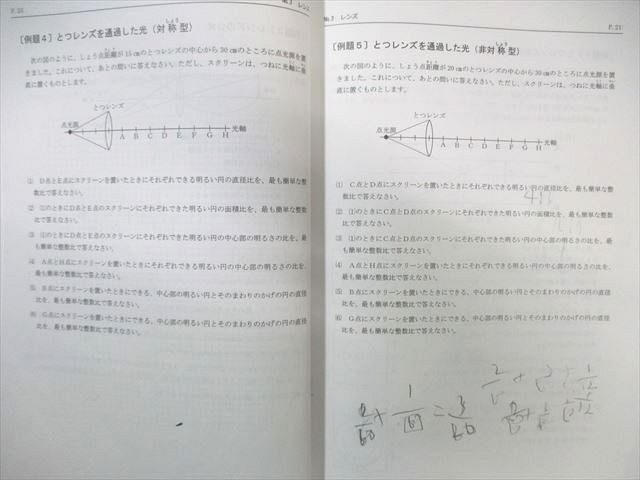 P.20
No.3 レンズ
[例題4] とつレンズを通過した光(対称型)
しょう
次の図のように、しょう点距離が15cmのとつレンズの中心から30cmのところに点光源を置
きました。これについて、あとの問いに答えなさい。ただし、スクリーンは、つねに光軸に垂
直に置くものとします。
とつレンズ
点光源
光軸
A B C D E F G H
D点とE点にスクリーンを置いたときにそれぞれできる明るい円の直径比を、最も簡単な整
数比で答えなさい。
①のときにD点とE点のスクリーンにそれぞれできる明るい円の面積比を、最も簡単な整
数比で答えなさい。
①のときにD点とE点のスクリーンにそれぞれできる明るい円の中心部の明るさの比を、最
も簡単な整数比で答えなさい。
A点とH点にスクリーンを置いたときにそれぞれできる明るい円の中心部の明るさの比を、
最も簡単な整数比で答えなさい。
B点にスクリーンを置いたときにできる、中心部の明るい円とそのまわりのかげの円の直径
比を、最も簡単な整数比で答えなさい。
G点にスクリーンを置いたときにできる、中心部の明るい円とそのまわりのかげの円の直径
比を、最も簡単な整数比で答えなさい。
No.3 レンズ
P.21
[例題5] とつレンズを通過した光(非対称型)
しょう
次の図のように、しょう点距離が20cmのとつレンズの中心から30cmのところに点光源を置
きました。これについて、あとの問いに答えなさい。ただし、スクリーンは、つねに光軸に垂
直に置くものとします。
とつレンズ
点光源
光軸
A B C D E F G H
(1) C点とD点にスクリーンを置いたときにそれぞれできる明るい円の直径比を、最も簡単な整
数比で答えなさい。
(2) (1)のときにC点とD点のスクリーンにそれぞれできる明るい円の面積比を、最も簡単な整
数比で答えなさい。
(3) (1)のときにC点とD点のスクリーンにそれぞれできる明るい円の中心部の明るさの比を、最
も簡単な整数比で答えなさい。
(4) A点とH点にスクリーンを置いたときにそれぞれできる明るい円の中心部の明るさの比を、
最も簡単な整数比で答えなさい。
(5) B点にスクリーンを置いたときにできる、中心部の明るい円とそのまわりのかげの円の直径
比を、最も簡単な整数比で答えなさい。
(6) G点にスクリーンを置いたときにできる、中心部の明るい円とそのまわりのかげの円の直径
比を、最も簡単な整数比で答えなさい。